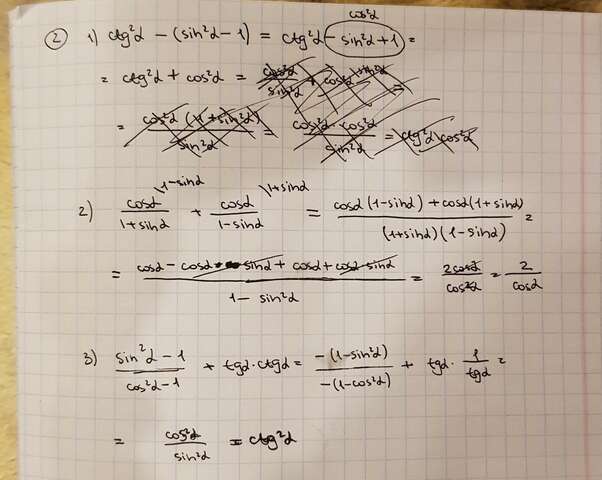 cos²α
② 1) ctg²α - (sin²α - 1) = ctg²α - sin²α + 1 =
= ctg²α + cos²α =
= cos²α (1 + sin²α) / sin²α = cos²α · cos²α / sin²α = ctg²α cos²α
\1-sinα \1+sinα
2) cosα / 1+sinα + cosα / 1-sinα = cosα (1-sinα) + cosα (1+sinα) / (1+sinα)(1-sinα) =
= cosα - cosα sinα + cosα + cosα sinα / 1 - sin²α = 2cosα / cos²α = 2 / cosα
3) sin²α - 1 / cos²α - 1 + tgα · ctgα = -(1-sin²α) / -(1-cos²α) + tgα · 1 / tgα =
= cos²α / sin²α = ctg²α